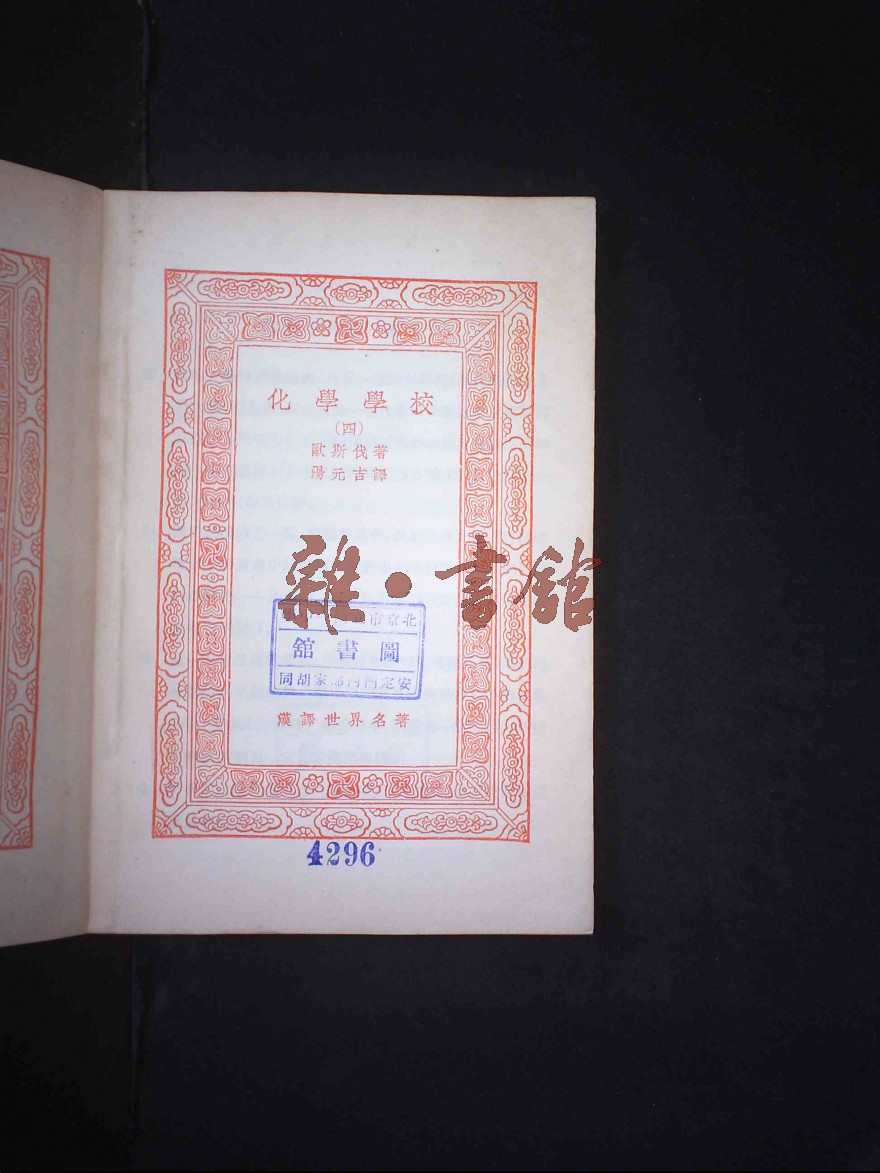 化學學校
(四)
歐斯伐著
湯元吉譯
雜·書舘
北京市
圖書舘
安定門內郎家胡同
漢譯世界名著
4296